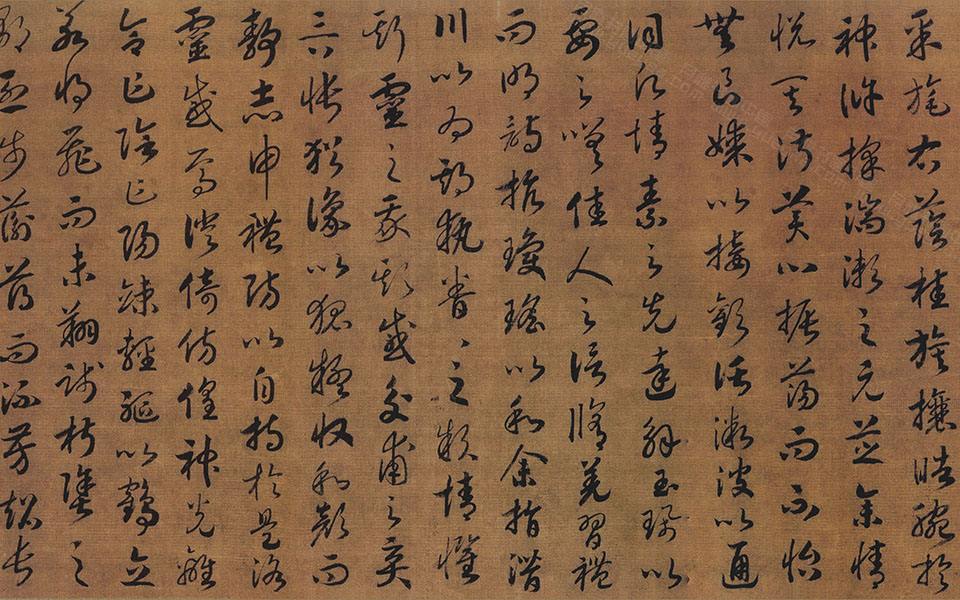 采旄右蔭桂旗攘皓腕於
神滸採湍瀨之玄芝余情
悅其淑美心振蕩而不怡
無良媒以接歡託微波以通
詞願情素之先達解玉珮以
要之嗟佳人之信脩羌習禮
而明詩抗瓊瑤以和余指潛
川以為期執眷、之款情懼
斯靈之我欺感交甫之棄
言悵猶豫以狐疑收和顏而
靜志申禮防以自持於是洛
靈感焉徙倚彷徨神光離
合乍陰乍陽竦輕軀以鶴立
若將飛而未翔踐椒塗之
郁烈步蘅薄而流芳超長